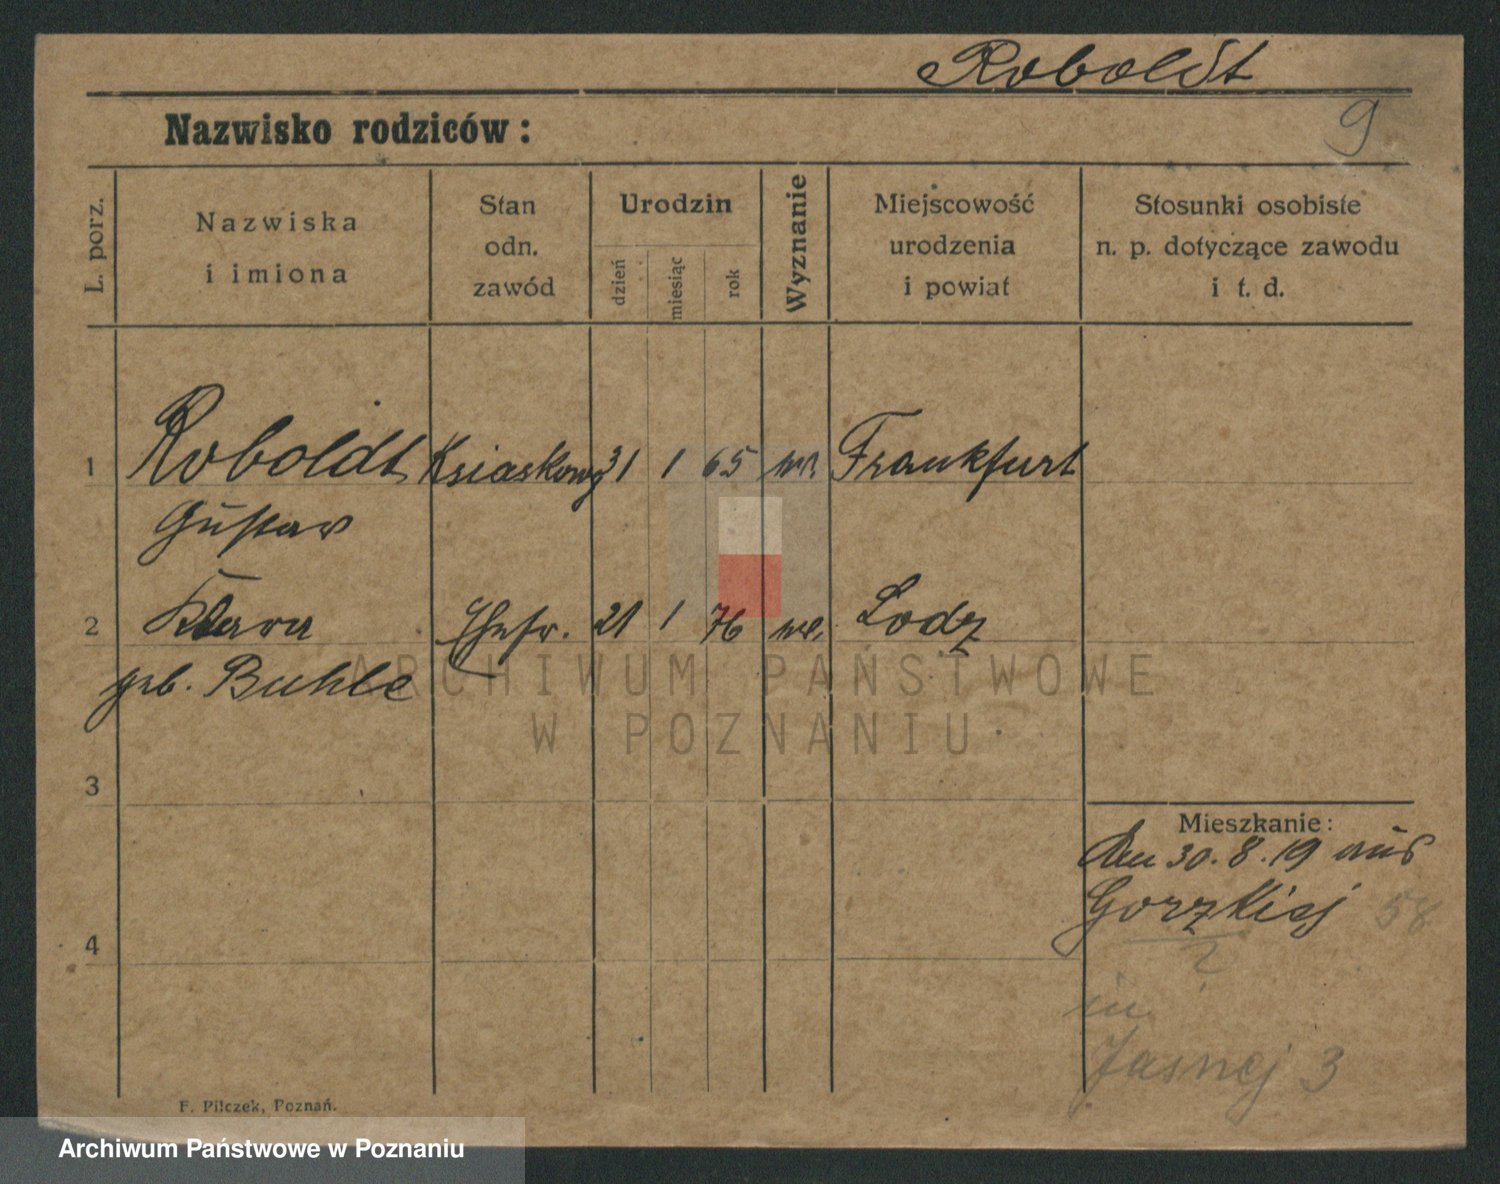 Roboldt
9
Nazwisko rodziców:
L. porz.
Nazwiska
i imiona
Stan
odn.
zawód
Urodzin
dzień
miesiąc
rok
Wyznanie
Miejscowość
urodzenia
i powiat
Stosunki osobiste
n. p. dotyczące zawodu
i t. d.
1 Roboldt Ksiaskowy 31 1 65 Frankfurt
Gustav
2 Klara Ehefr. 21 1 76 Lodz
geb. Buhle
3
Mieszkanie:
30.8.19 aus
Gorzkiej 58
4
in
Jasnej 3
F. Pilczek, Poznań.
ARCHIWUM PAŃSTWOWE
W POZNANIU
Archiwum Państwowe w Poznaniu